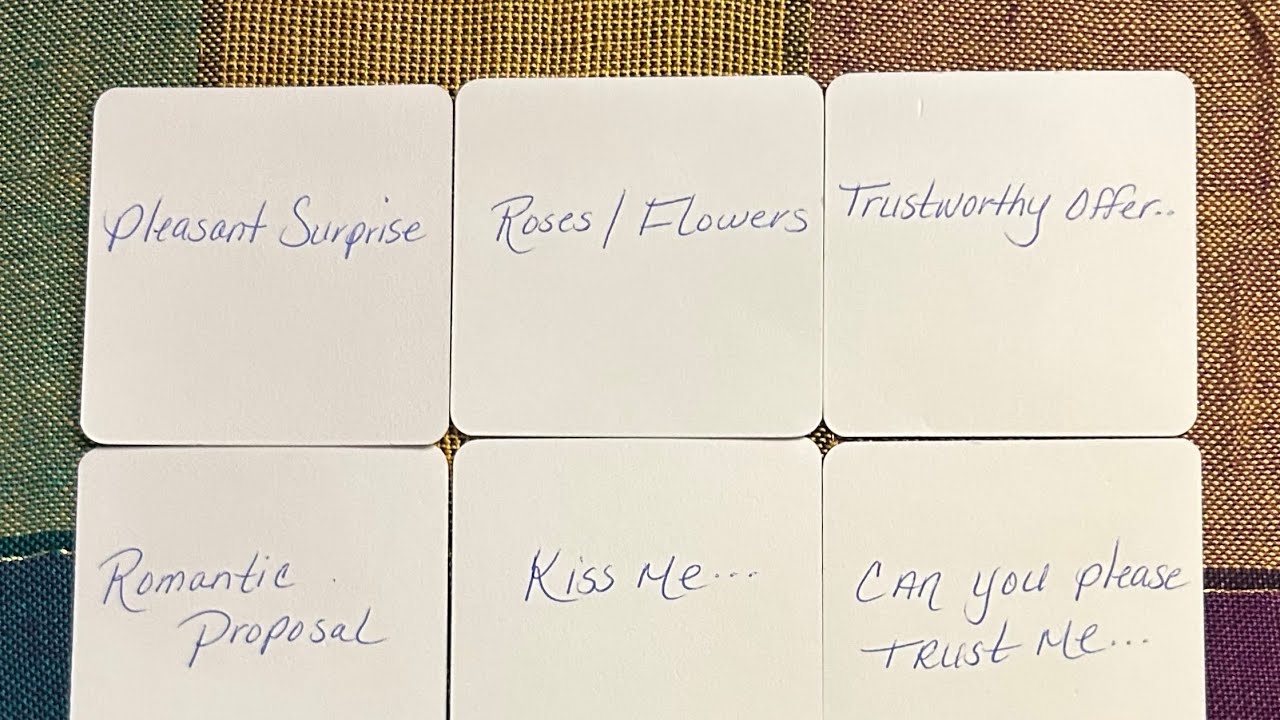 Pleasant Surprise
Roses / Flowers
Trustworthy Offer..
Romantic
Proposal
Kiss Me...
CAn you please
TRUST Me...